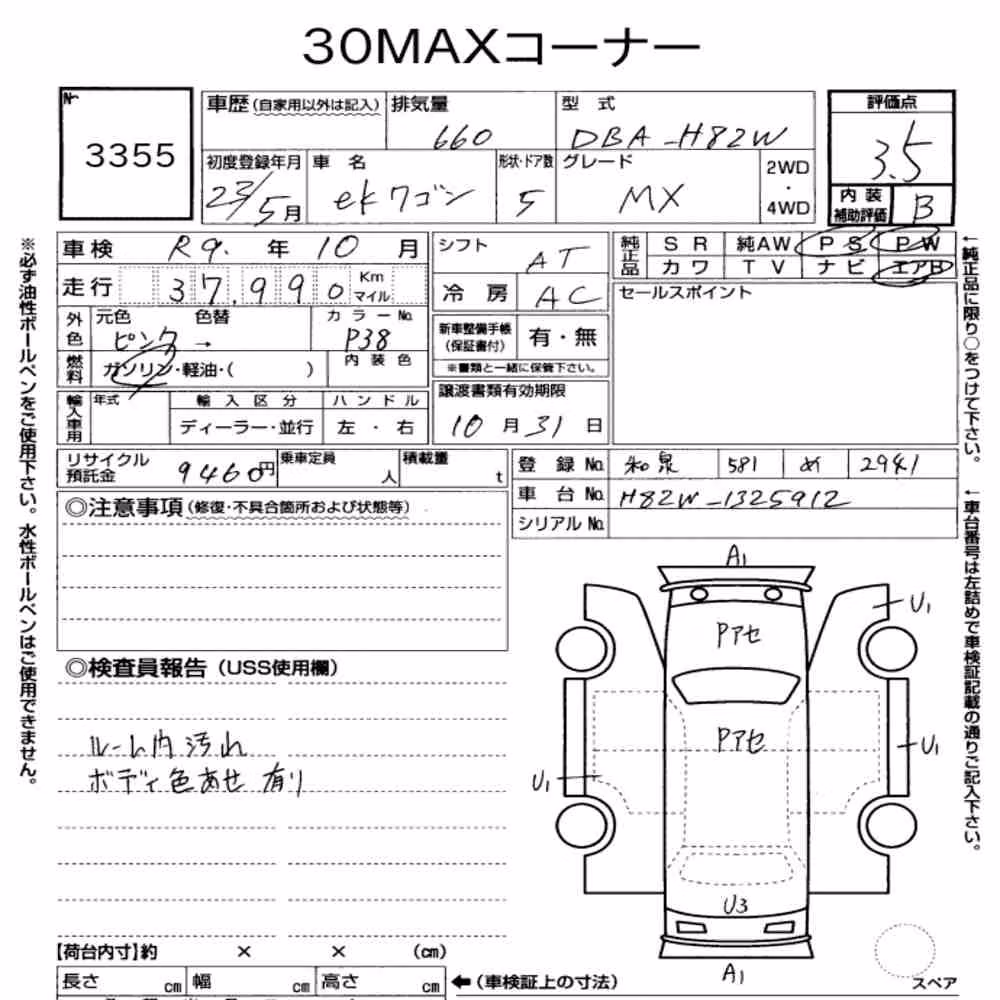 30MAXコーナー
№
3355
車歴(自家用以外は記入)
排気量
660
型 式
DBA-H82W
評価点
3.5
初度登録年月
23/5月
車 名
ekワゴン
形状・ドア数
5
グレード
MX
2WD
・
4WD
内 装
補助評価
B
車 検 R9. 年 10 月
走行 37,990 Km
マイル
シフト
AT
冷 房
AC
純正品
S R 純AW P S P W
カ ワ T V ナ ビ エアB
セールスポイント
外色
元色 色替
ピンク →
カラー No.
P38
燃料
ガソリン・軽油・( )
内 装 色
新車整備手帳
(保証書付)
有・無
※書類と一緒に保管下さい。
輸入車用
年式
輸 入 区 分
ディーラー・並行
ハ ン ド ル
左 ・ 右
譲渡書類有効期限
10 月 31 日
リサイクル
預託金
9460円
乗車定員
人
積載量
t
登 録 No. 和泉 581 め 2941
車 台 No. H82W-1325912
シリアル No.
◎注意事項(修復・不具合箇所および状態等)
◎検査員報告(USS使用欄)
ルーム内汚れ
ボディ色あせ有り
A1
U1
Pアセ
Pアセ
U1
U1
U3
A1
スペア
【荷台内寸】約 × × (cm)
長さ cm 幅 cm 高さ cm ←(車検証上の寸法)
※必ず油性ボールペンをご使用下さい。水性ボールペンはご使用できません。
←純正品に限り○をつけて下さい。
←車台番号は左詰めで車検証記載の通りご記入下さい。